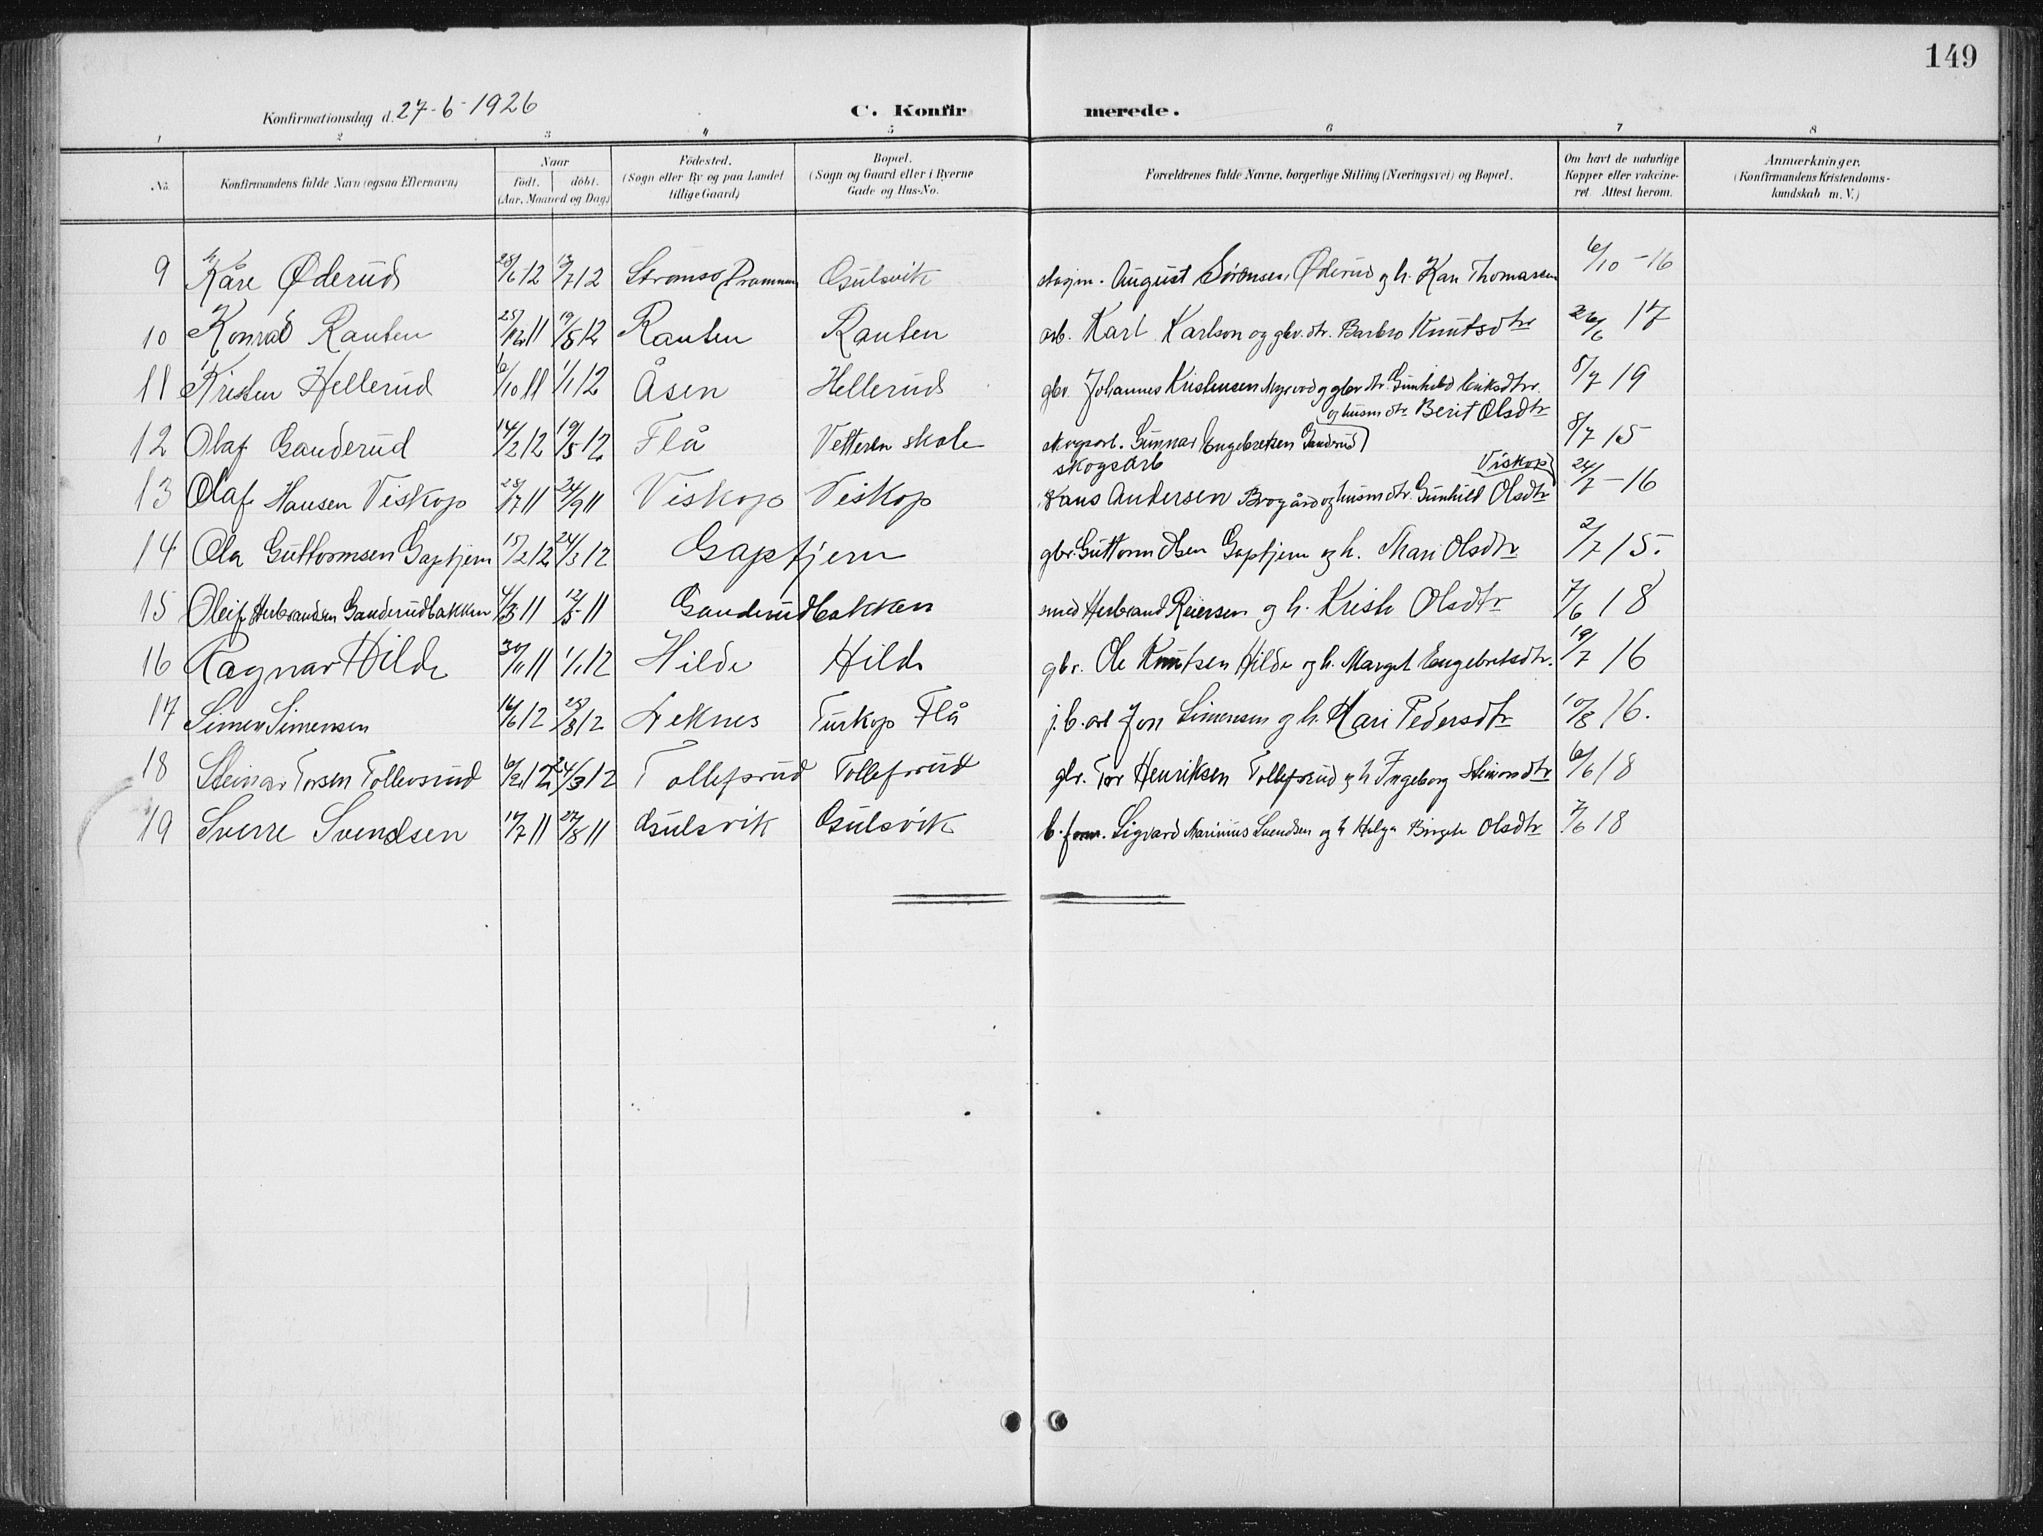 149
Konfirmationsdag d. 27-6-1926
C. Konfirmerede.
1 2 3 4 5 6 7 8
No. Konfirmandens fulde Navn (ogsaa Efternavn) Naar født. døbt. (Aar, Maaned og Dag) Fødested. (Sogn eller By og paa Landet tillige Gaard) Bopæl. (Sogn og Gaard eller i Byerne Gade og Hus-No. Forældrenes fulde Navne, borgerlige Stilling (Næringsvei) og Bopæl. Om havt de naturlige Kopper eller vakcineret. Attest herom. Anmærkninger. (Konfirmandens Kristendomskundskab m. V.)
9 Kåre Øderud 28/6 12 7 12 Strømsø, Drammen Gulsvik August Sørensen Øderud og h. Kari Thomassen 6/10-16
10 Konrad Rauten 11 19/5 12 Rauten Rauten arb. Karl Karlson og gbr. dtr. Barbro Knutsdtr 26/6 17
11 Kristen Hellerud 6/10 11 1/1 12 Åsen Hellerud gbr Johannes Kristensen og gbr dtr. Gunhild Eriksdtr. 8/7 19
12 Olaf Ganderud 14/2 12 19/5 12 Flå Vetteren skole skogsarb. Gunnar Engebretsen Ganderud og husm dtr Berit Olsdtr 8/7 15
13 Olaf Hansen Viskop 28/7 11 24/9 11 Viskop Viskop skogsarb Hans Andersen Brogård og husm dtr. Gunhild Olsdtr Viskop 24/7-16
14 Ola Guttormsen Gaptjern 15/2 12 24/3 12 Gaptjern gbr. Guttorm Olsen Gaptjern og h. Mari Olsdtr 2/7 15.
15 Oleif Herbrandsen Ganderudbakken 4/3 11 12/5-11 Ganderudbakken smed Herbrand Reiersen og h. Kristi Olsdtr 7/6 18
16 Ragnar Hilde 30/11 11 1/1 12 Hilde Hilde gbr. Ole Knutsen Hilde og h. Margit Engebretsdtr. 19/7 16
17 Simen Simensen 16/6 12 25/8 12 Veknes Turkop Flå j.b. arb Jon Simensen og h. Kari Pedersdtr 10/8 16.
18 Steinar Torsen Tollevsrud 6/2 12 24/3 12 Tollefsrud Tollefsrud gbr. Tor Henriksen Tollefsrud og h Ingeborg Steinarsdtr 6/6 18
19 Sverre Svendsen 17/7 11 27/8 11 Gulsvik Gulsvik b. form. Sigvard Marinius Svendsen og h Helga Birgit Olsdtr 7/6 18